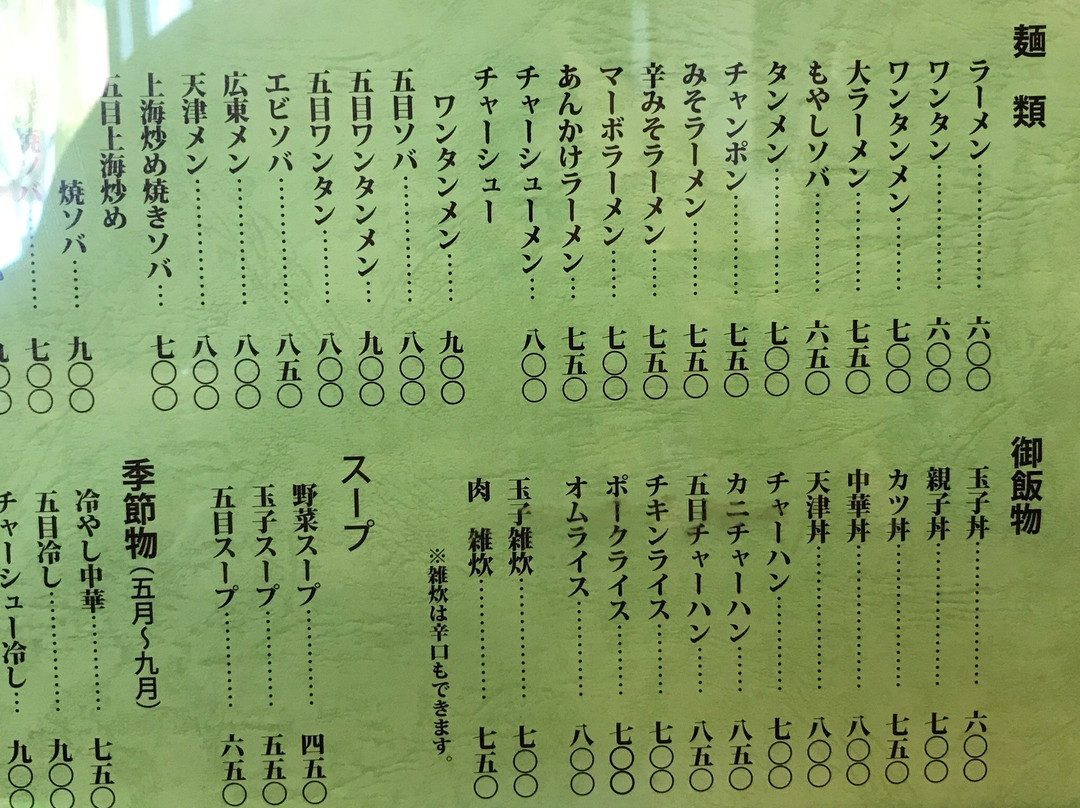 麺類
ラーメン…………六〇〇
ワンタン…………六〇〇
ワンタンメン………七〇〇
大ラーメン…………七五〇
もやしソバ…………六五〇
タンメン…………七〇〇
チャンポン…………七五〇
みそラーメン………七五〇
辛みそラーメン……七五〇
マーボラーメン……七〇〇
あんかけラーメン…七五〇
チャーシューメン…八〇〇
チャーシュー
ワンタンメン……九〇〇
五目ソバ…………八〇〇
五目ワンタンメン…九〇〇
五目ワンタン………八〇〇
エビソバ…………八五〇
広東メン…………八〇〇
天津メン…………八〇〇
上海炒め焼きソバ…七〇〇
五目上海炒め
焼ソバ……九〇〇
焼ソバ………七〇〇
九〇〇
御飯物
玉子丼…………六〇〇
親子丼…………七〇〇
カツ丼…………七五〇
中華丼…………八〇〇
天津丼…………八〇〇
チャーハン………七〇〇
カニチャーハン……八五〇
五目チャーハン……八五〇
チキンライス………七〇〇
ポークライス………七〇〇
オムライス………八〇〇
玉子雑炊…………七〇〇
肉 雑炊…………七五〇
※雑炊は辛口もできます。
スープ
野菜スープ………四五〇
玉子スープ………五五〇
五目スープ………六五〇
季節物(五月〜九月)
冷やし中華………七五〇
五目冷し…………九〇〇
チャーシュー冷し…九〇〇